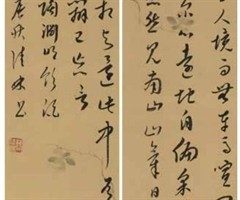 人境而無車馬喧
爾心遠地自偏采
悠然見南山山氣日
相與還此中有
辨已忘言
陶淵明飲酒